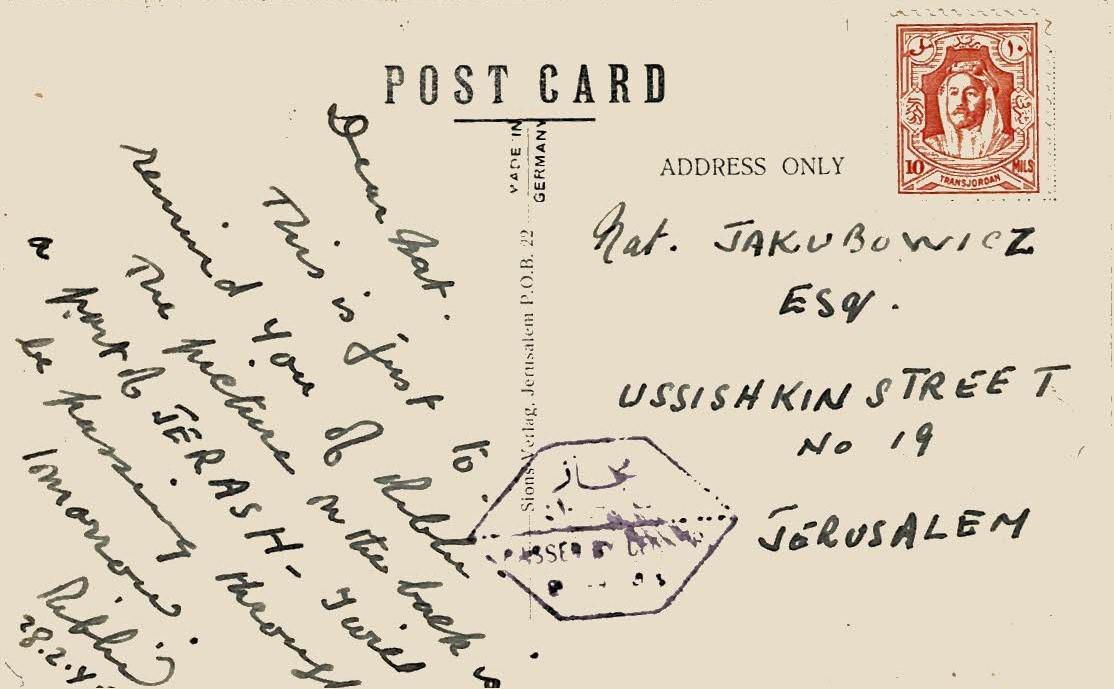 POST CARD
MADE IN
GERMANY
ADDRESS ONLY
١٠
10 MILS
TRANSJORDAN
Dear Nat.
This is just to
remind you of
The picture on the back is
a part of JERASH - I will
be passing through
tomorrow.
28.2.4
Nat. JAKUBOWICZ
ESQ.
USSISHKIN STREET
No 19
JERUSALEM
Sions Verlag, Jerusalem P.O.B. 22
مجاز
PASSED BY